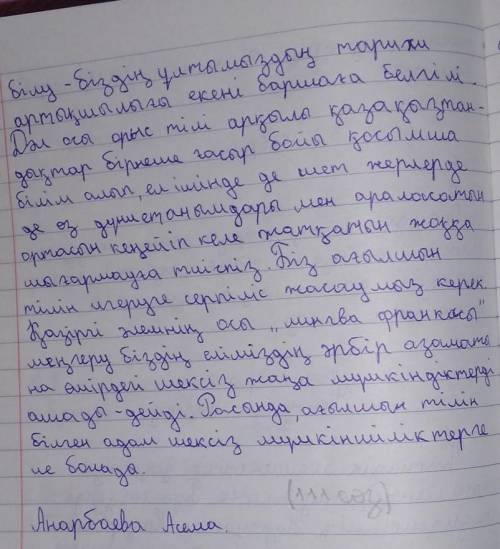 білу - біздің ұлтымыздың тарихи
артықшылығы екені баршаға белгілі.
Дәл осы орыс тілі арқылы қазақызтан-
дықтар бірнеше ғасыр бойы қосымша
білім алып, ел ішінде де шет жерлерде
де өз дүниетанымдары мен араласатын
ортасын кеңейіп келе жатқатын жоққа
шығармауға тиіспіз. Біз ағылшын
тілін игеруге серпіліс жасау мыз керек.
Қазіргі әлемнің осы „лингва франкасы"
меңгеру біздің еліміздің әрбір азаматы
на өмірдегі шексіз жаңа мүмкіндіктерді
ашады - дейді. Расында, ағылшын тілін
білген адам шексіз мүмкіншіліктерге
ие болада.
(111 сөз)
Анарбаева Асема.